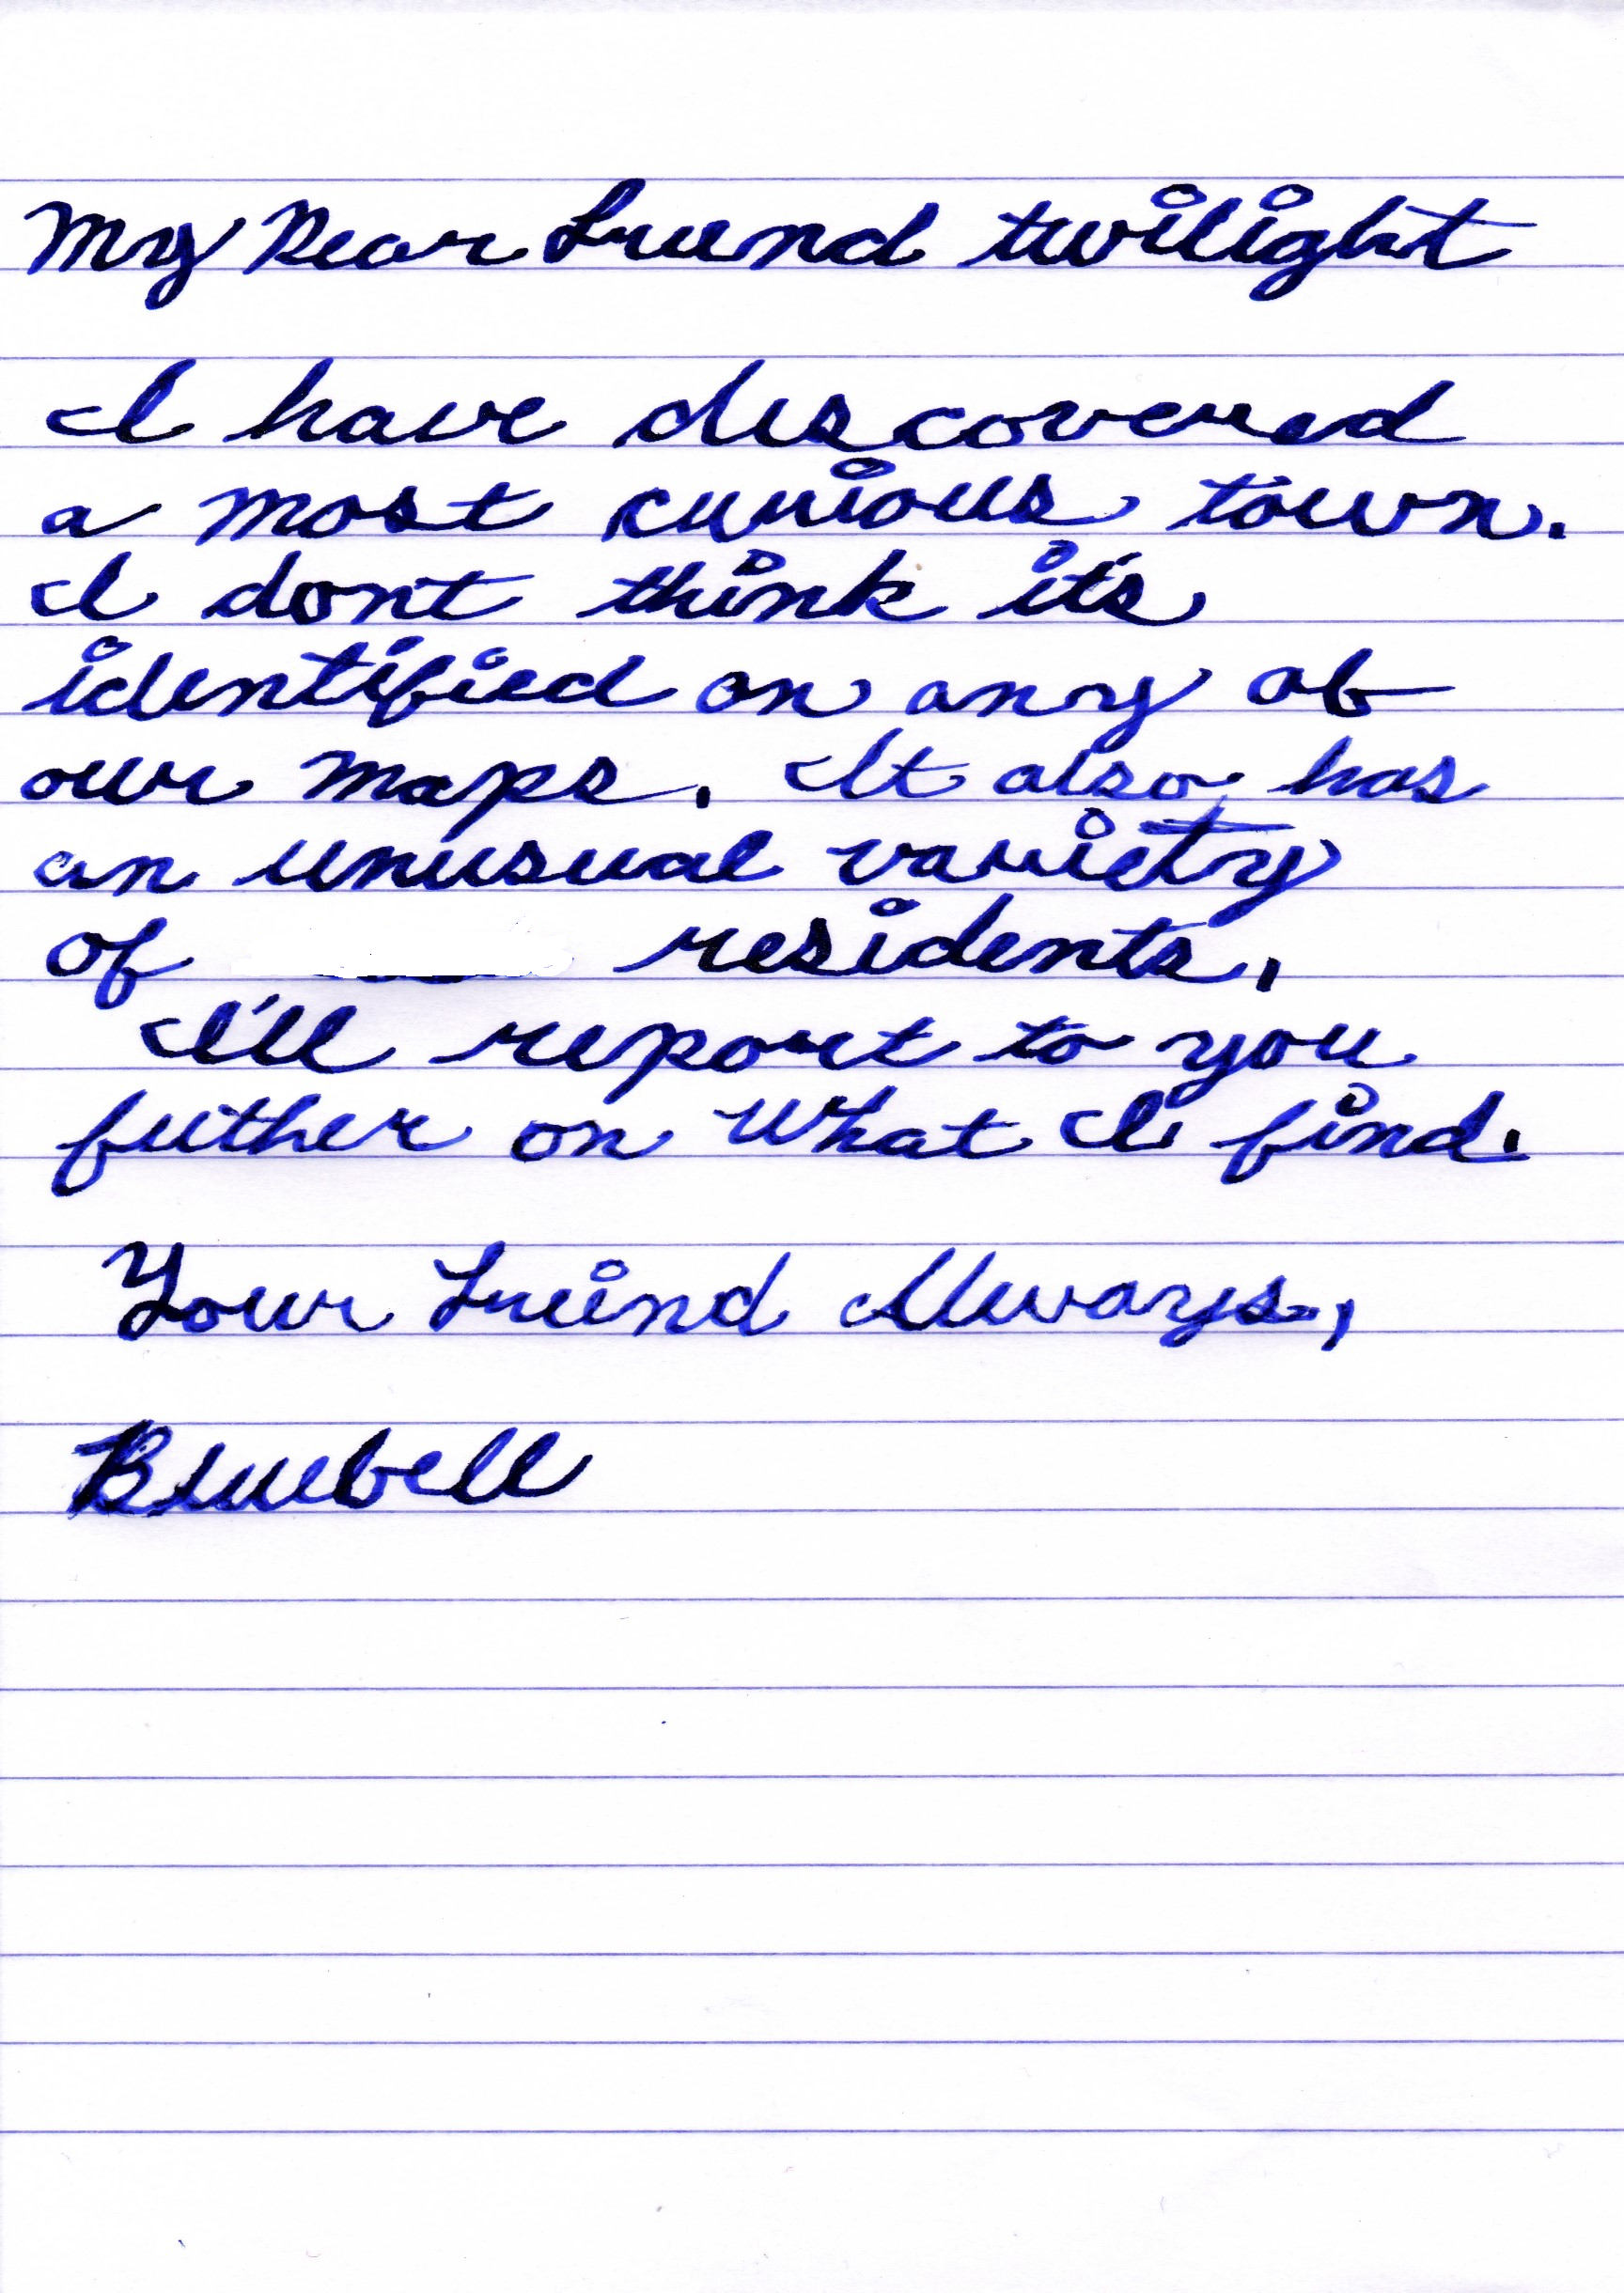 My Dear Friend twilight
I have discovered
a most curious town.
I dont think it's
identified on any of
our maps. It also has
an unusual variety
of residents.
I'll report to you
futher on what I find.
Your Friend Always,
Bluebell